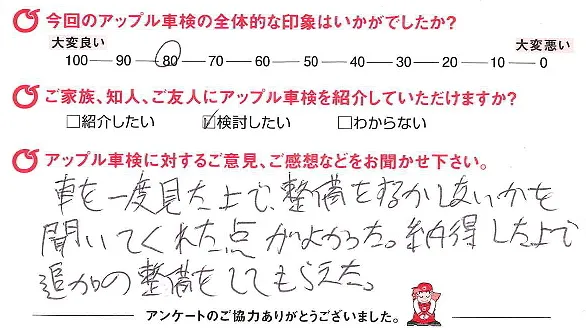 今回のアップル車検の全体的な印象はいかがでしたか?
大変良い 大変悪い
100 ― 90 ― 80 ― 70 ― 60 ― 50 ― 40 ― 30 ― 20 ― 10 ― 0
ご家族、知人、ご友人にアップル車検を紹介していただけますか?
□紹介したい ☑検討したい □わからない
アップル車検に対するご意見、ご感想などをお聞かせ下さい。
車を一度見た上で、整備をするかしないかを
聞いてくれた点がよかった。納得した上で
追加の整備をしてもらえた。
アンケートのご協力ありがとうございました。